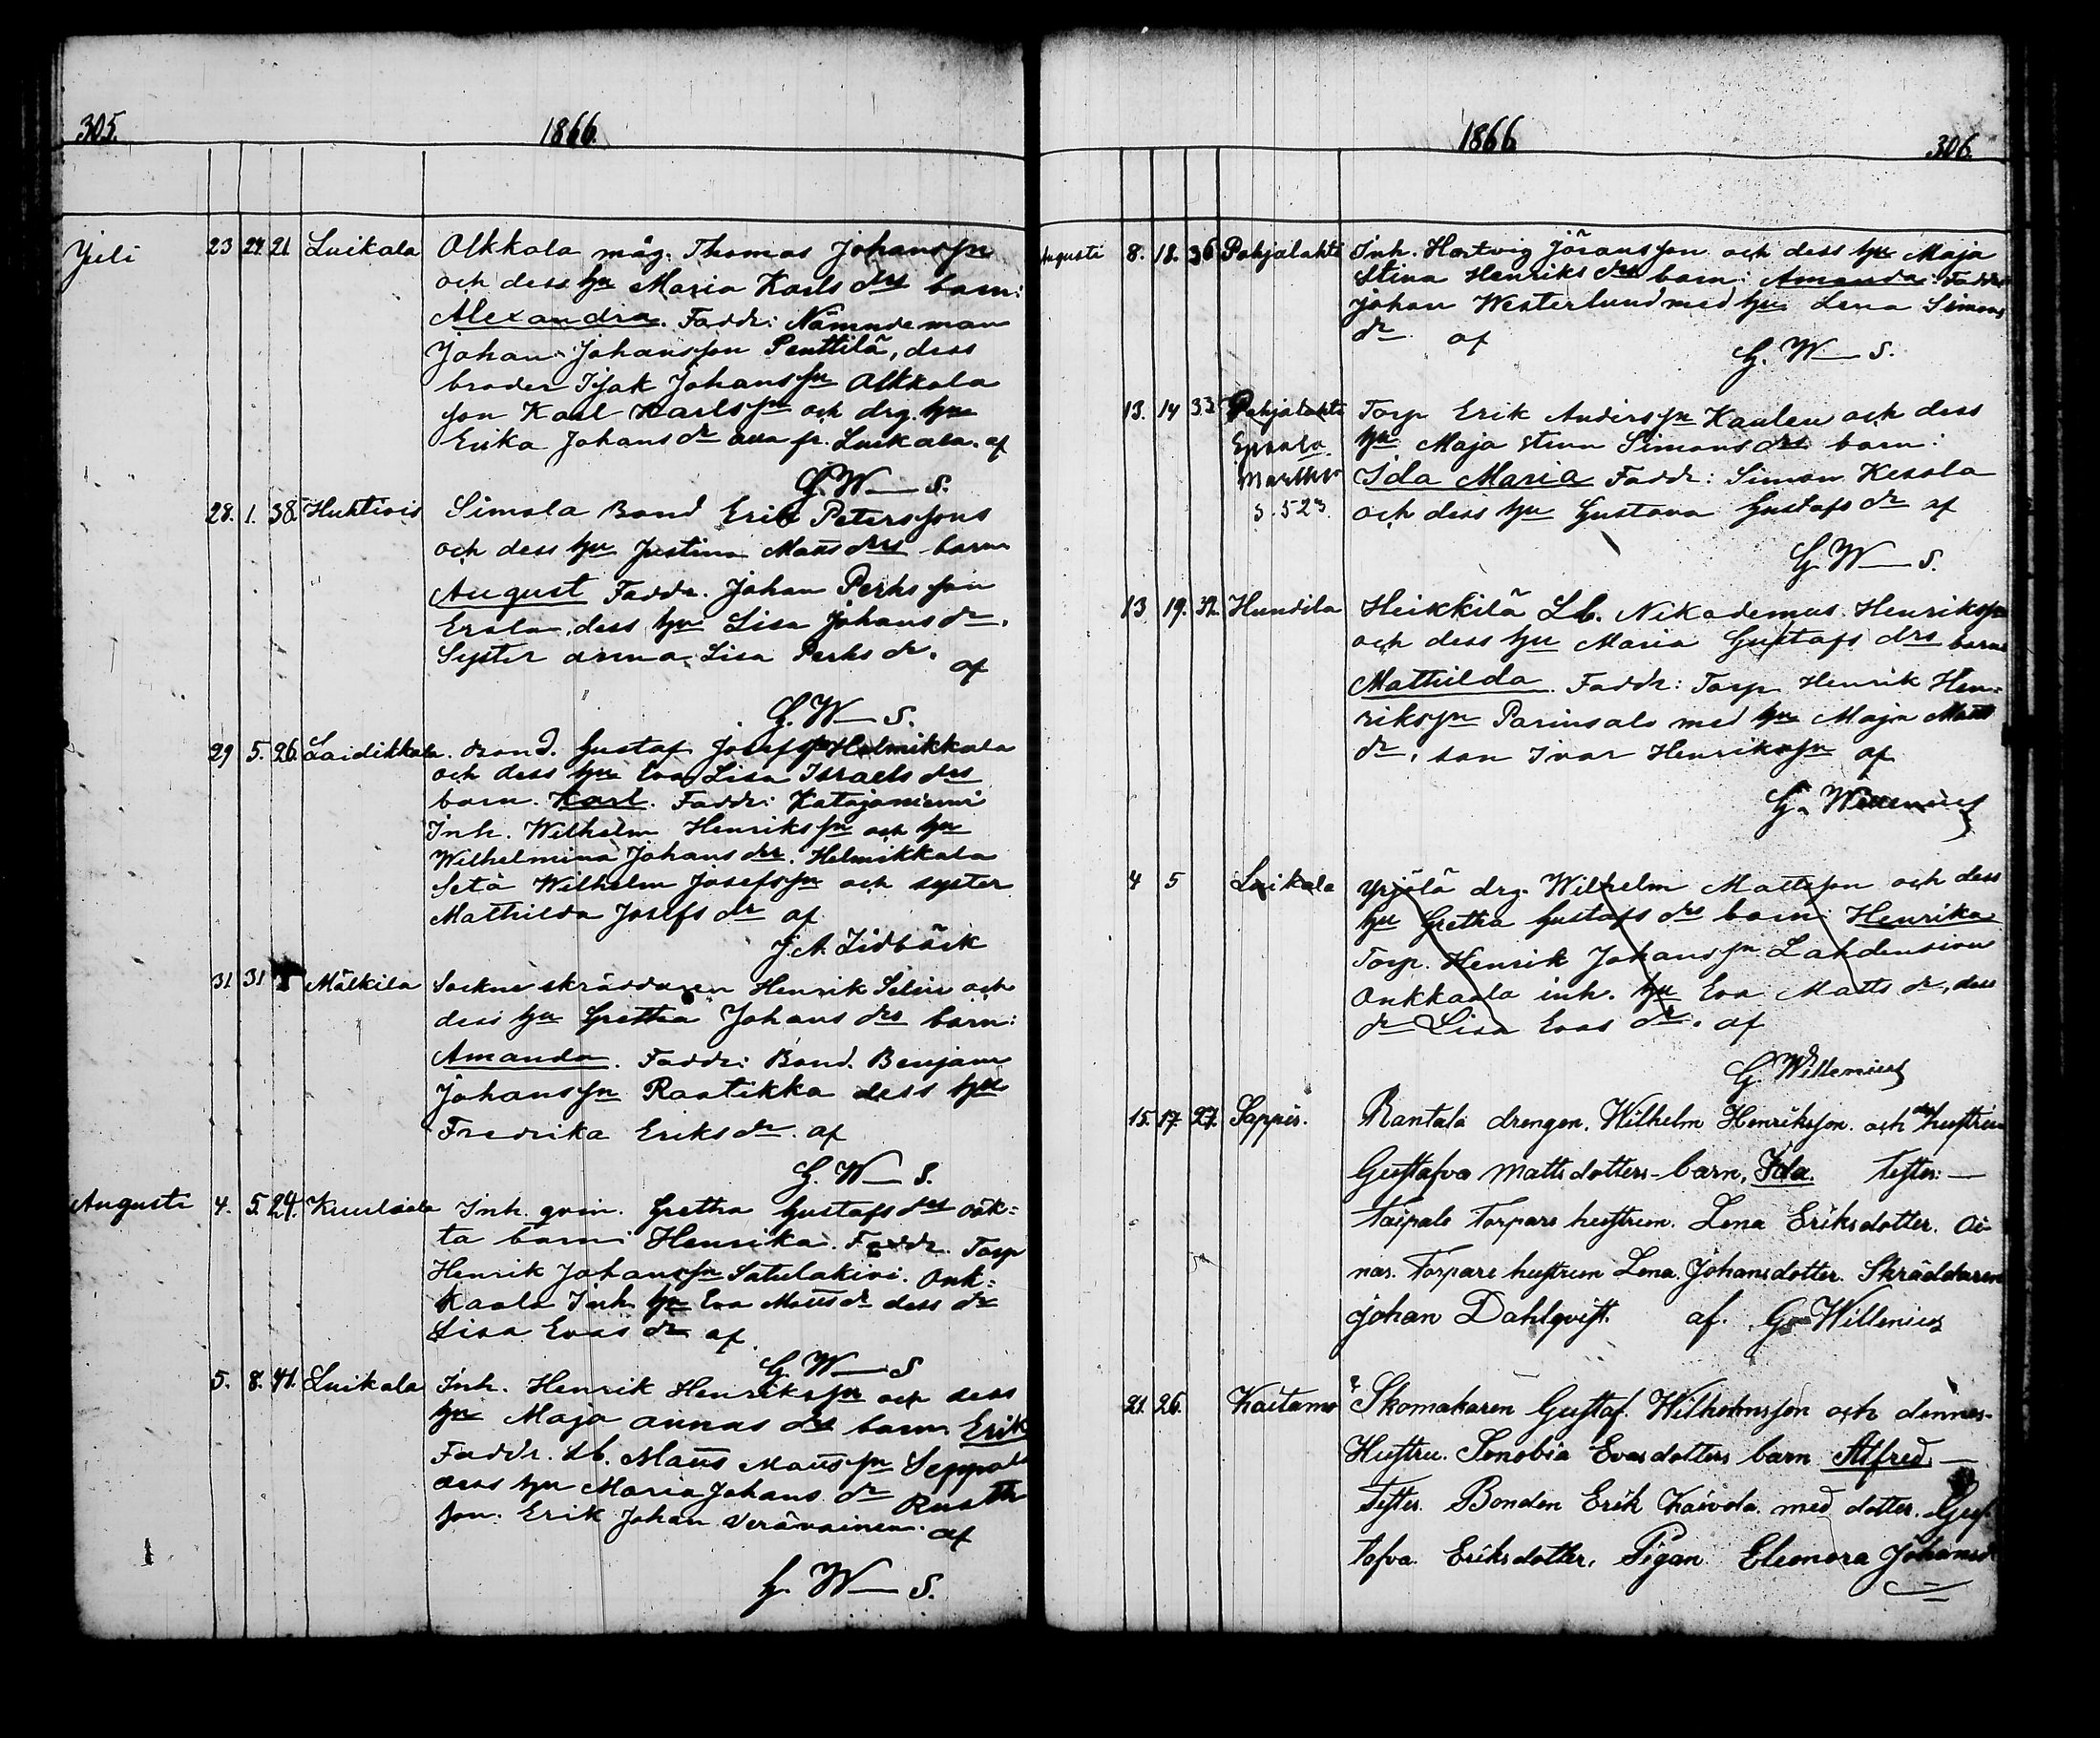 305.
1866.
Juli 23 29 21 Luikala Olkkola måg. Thomas Johansson
och dess hu Maria Karls drs barn:
Alexandra. Faddr: Nämndeman
Johan Johansson Penttilä, dess
broder Isak Johansson Olkkola
son Karl Karlsson och drg. hu
Erika Johans dr fr. Luikala. af
G. W— S.
28. 1. 38. Huhtivis Simola Bond Erik Peterssons
och dess hu Justina Matts drs barn
August Faddr. Johan Perhsson
Erola, dess hu Lisa Johans dr.
Syster Anna Lisa Perhs dr. af
G. W— S.
29 5. 26. Laidikkala Bond. Gustaf Josefsson Helmikkala
och dess hu Eva Lisa Israels drs
barn. Karl. Faddr: Katajaniemi
Inh. Wilhelm Henriksson och hu
Wilhelmina Johans dr. Helmikkala
Setä Wilhelm Josefsson och syster
Mathilda Josefs dr af
J. A. Lidbäck
31 31 Mälkila Sockne skräddaren Henrik Selin och
dess hu Gretha Johans drs barn:
Amanda. Faddr: Bond. Benjam
Johansson Raatikka dess hu
Fredrika Eriks dr. af
G. W— S.
Augusti 4. 5. 24. Kuurlada Inh. qvin. Gretha Gustafs drs oäk=
ta barn Henrika. Faddr. Torp
Henrik Johansson Satulakivi. Onk=
kaala Inh hu Eva Matts dr dess dr
Lisa Evas dr af
G. W— S
5. 8. 41. Luikala Inh. Henrik Henriksson och dess
hu Maja Annas drs barn Erik
Faddr. Lb. Matts Mattsson Seppälä
dess hu Maria Johans dr Rusth
son. Erik Johan Verävainen. af
G. W— S.
1866
306.
Augusti 8. 18. 36 Pohjalahti Inh. Hartvig Göransson och dess hu Maja
Stina Henriks drs barn: Amanda: Faddr
Johan Westerlund med hu Lena Simons
dr af
G. W— S.
13. 14 33 Pohjalahti Torp Erik Andersson Kaulen och dess
hu Maja Stina Simons drs barn:
Ida Maria Faddr: Simon Kesola
S. 523 och dess hu Gustava Gustafs dr af
G. W— S.
13 19. 32. Hundila Heikkilä Lb. Nikodemus Henriksson
och dess hu Maria Gustafs drs barn
Mathilda Faddr: Torp Henrik Hen=
riksson Parinsalo med hu Maja Matts
dr, son Ivar Henriksson af
G. Willenius
4 5 Luikala Yrjölä drg. Wilhelm Mattsson och dess
hu Gretha Gustafs drs barn: Henrika
Torp. Henrik Johansson Lahdensivu
Onkkaala inh. hu Eva Matts dr, dess
dr Lisa Evas dr. af
G. Willenius
15. 17. 27. Sappis. Rantala drengen. Wilhelm Henriksson. och des hustru
Gustafva Mattsdotters barn, Ida. Testes: —
Taipale Torpare hustrun. Lena Eriksdotter. Oi-
nas. Torpare hustrun Lena Johansdotter. Skräddaren
Johan Dahlqvist. af. G. Willenius
21. 26. Kaitamo Skomakaren Gustaf. Wilhelmsson och dennes
Hustru. Senobia Evasdotters barn Alfred. —
Testes. Bonden Erik Kaivola. med dotter. Gus
tafva. Eriksdotter, Pigan Eleonora Johansd